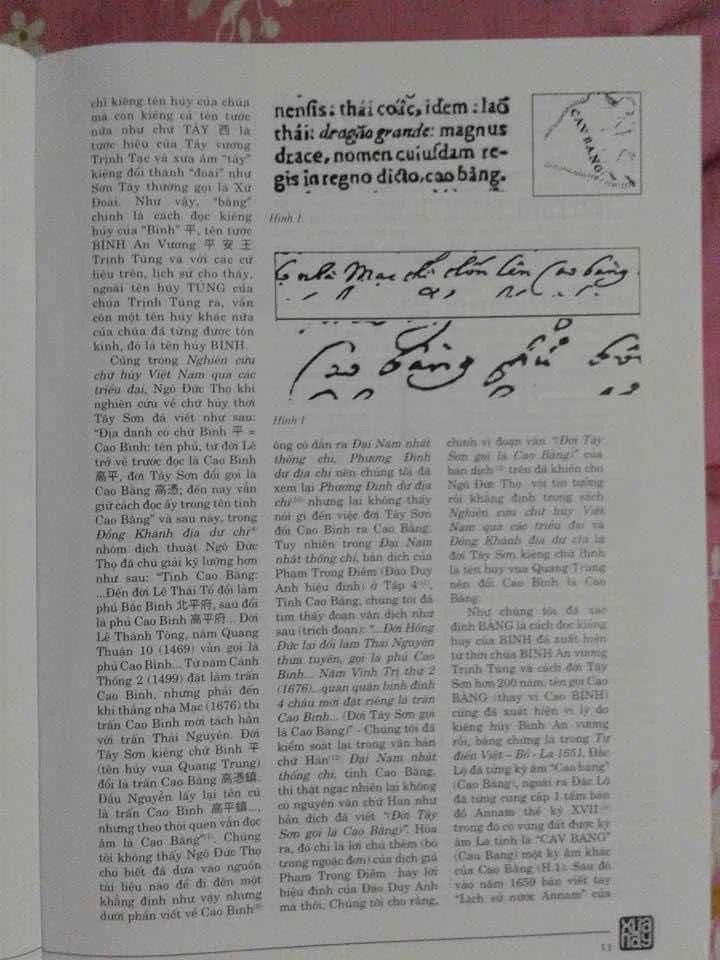 chỉ kiêng tên húy của chúa
mà còn kiêng cả tên tước
nữa như chữ TÂY 西 là
tước hiệu của Tây vương
Trịnh Tạc và xưa âm “tây”
kiêng đổi thành “đoài” như
Sơn Tây thường gọi là Xứ
Đoài. Như vậy, “bằng”
chính là cách đọc kiêng
húy của “Bình” 平, tên tước
BÌNH An Vương 平安王
Trịnh Tùng và với các cứ
liệu trên, lịch sử cho thấy,
ngoài tên húy TÙNG của
chúa Trịnh Tùng ra, vẫn
còn một tên húy khác nữa
của chúa đã từng được tôn
kính, đó là tên húy BÌNH.
Cũng trong Nghiên cứu
chữ húy Việt Nam qua các
triều đại, Ngô Đức Thọ khi
nghiên cứu về chữ húy thời
Tây Sơn đã viết như sau:
“Địa danh có chữ Bình 平 =
Cao Bình: tên phủ, từ đời Lê
trở về trước đọc là Cao Bình
高平, đời Tây Sơn đổi gọi là
Cao Bằng 高憑; đến nay vẫn
giữ cách đọc ấy trong tên tỉnh
Cao Bằng” và sau này, trong
Đồng Khánh địa dư chí
nhóm dịch thuật Ngô Đức
Thọ đã chú giải kỹ lưỡng hơn
như sau: “Tỉnh Cao Bằng:
...Đến đời Lê Thái Tổ đổi làm
phủ Bắc Bình 北平府, sau đổi
là phủ Cao Bình 高平府... Đời
Lê Thánh Tông, năm Quang
Thuận 10 (1469) vẫn gọi là
phủ Cao Bình... Từ năm Cảnh
Thống 2 (1499) đặt làm trấn
Cao Bình, nhưng phải đến
khi thắng nhà Mạc (1676) thì
trấn Cao Bình mới tách hẳn
với trấn Thái Nguyên. Đời
Tây Sơn kiêng chữ Bình 平
(tên húy vua Quang Trung)
đổi là trấn Cao Bằng 高憑鎮.
Đầu Nguyễn lấy lại tên cũ
là trấn Cao Bình 高平鎮...,
nhưng theo thói quen vẫn đọc
âm là Cao Bằng”. Chúng
tôi không thấy Ngô Đức Thọ
cho biết đã dựa vào nguồn
tài liệu nào để đi đến một
khẳng định như vậy nhưng
dưới phần viết về Cao Bình
nensis: thái coúc, idem: laõ
thái: dragão grande: magnus
drace, nomen cuiusdam re-
gis in regno dicto, cao bằng.
CAV BANG
Hình 1
nhà Mạc chỉ chốn lên Cao bàng
Cao bàng phủ
Hình 1
ông có dẫn ra Đại Nam nhất
thống chí, Phương Đình
dư địa chí nên chúng tôi đã
xem lại Phương Đình dư địa
chí nhưng lại không thấy
nói gì đến việc đời Tây Sơn
đổi Cao Bình ra Cao Bằng.
Tuy nhiên trong Đại Nam
nhất thống chí, bản dịch của
Phạm Trọng Điềm (Đào Duy
Anh hiệu đính) ở Tập 4,
Tỉnh Cao Bằng, chúng tôi đã
tìm thấy đoạn văn dịch như
sau (trích đoạn): “...Đời Hồng
Đức lại đổi làm Thái Nguyên
thừa tuyên, gọi là phủ Cao
Bình... Năm Vĩnh Trị thứ 2
(1676)...quan quân bình định
4 châu mới đặt riêng là trấn
Cao Bình... (Đời Tây Sơn gọi
là Cao Bằng)” - Chúng tôi đã
kiểm soát lại trong văn bản
chữ Hán Đại Nam nhất
thống chí, tỉnh Cao Bằng,
thì thật ngạc nhiên lại không
có nguyên văn chữ Hán như
bản dịch đã viết “(Đời Tây
Sơn gọi là Cao Bằng)”. Hóa
ra, đó chỉ là lời chú thêm (bỏ
trong ngoặc đơn) của dịch giả
Phạm Trọng Điềm hay lời
hiệu đính của Đào Duy Anh
mà thôi; Chúng tôi cho rằng,
chính vì đoạn văn “(Đời Tây
Sơn gọi là Cao Bằng)” của
bản dịch trên đã khiến cho
Ngô Đức Thọ vội tin tưởng
rồi khẳng định trong sách
Nghiên cứu chữ húy Việt
Nam qua các triều đại và
Đồng Khánh địa dư chí là
đời Tây Sơn kiêng chữ Bình
là tên húy vua Quang Trung
nên đổi Cao Bình là Cao
Bằng.
Như chúng tôi đã xác
định BẰNG là cách đọc kiêng
húy của BÌNH đã xuất hiện
từ thời chúa BÌNH An vương
Trịnh Tùng và cách đời Tây
Sơn hơn 200 năm, tên gọi Cao
BẰNG (thay vì Cao BÌNH)
cũng đã xuất hiện vì lý do
kiêng húy Bình An vương
rồi, bằng chứng là trong Tự
điển Việt – Bồ - La 1651, Đắc
Lộ đã từng ký âm “Cao bàng”
(Cao Bằng), ngoài ra Đắc Lộ
đã từng cung cấp 1 tấm bản
đồ Annam thế kỷ XVII
trong đó có vùng đất được ký
âm La tinh là “CAV BANG”
(Cau Bang) một ký âm khác
của Cao Bằng (H.1). Sau đó
vào năm 1659 bản viết tay
“Lịch sử nước Annam” của
XƯA
NAY